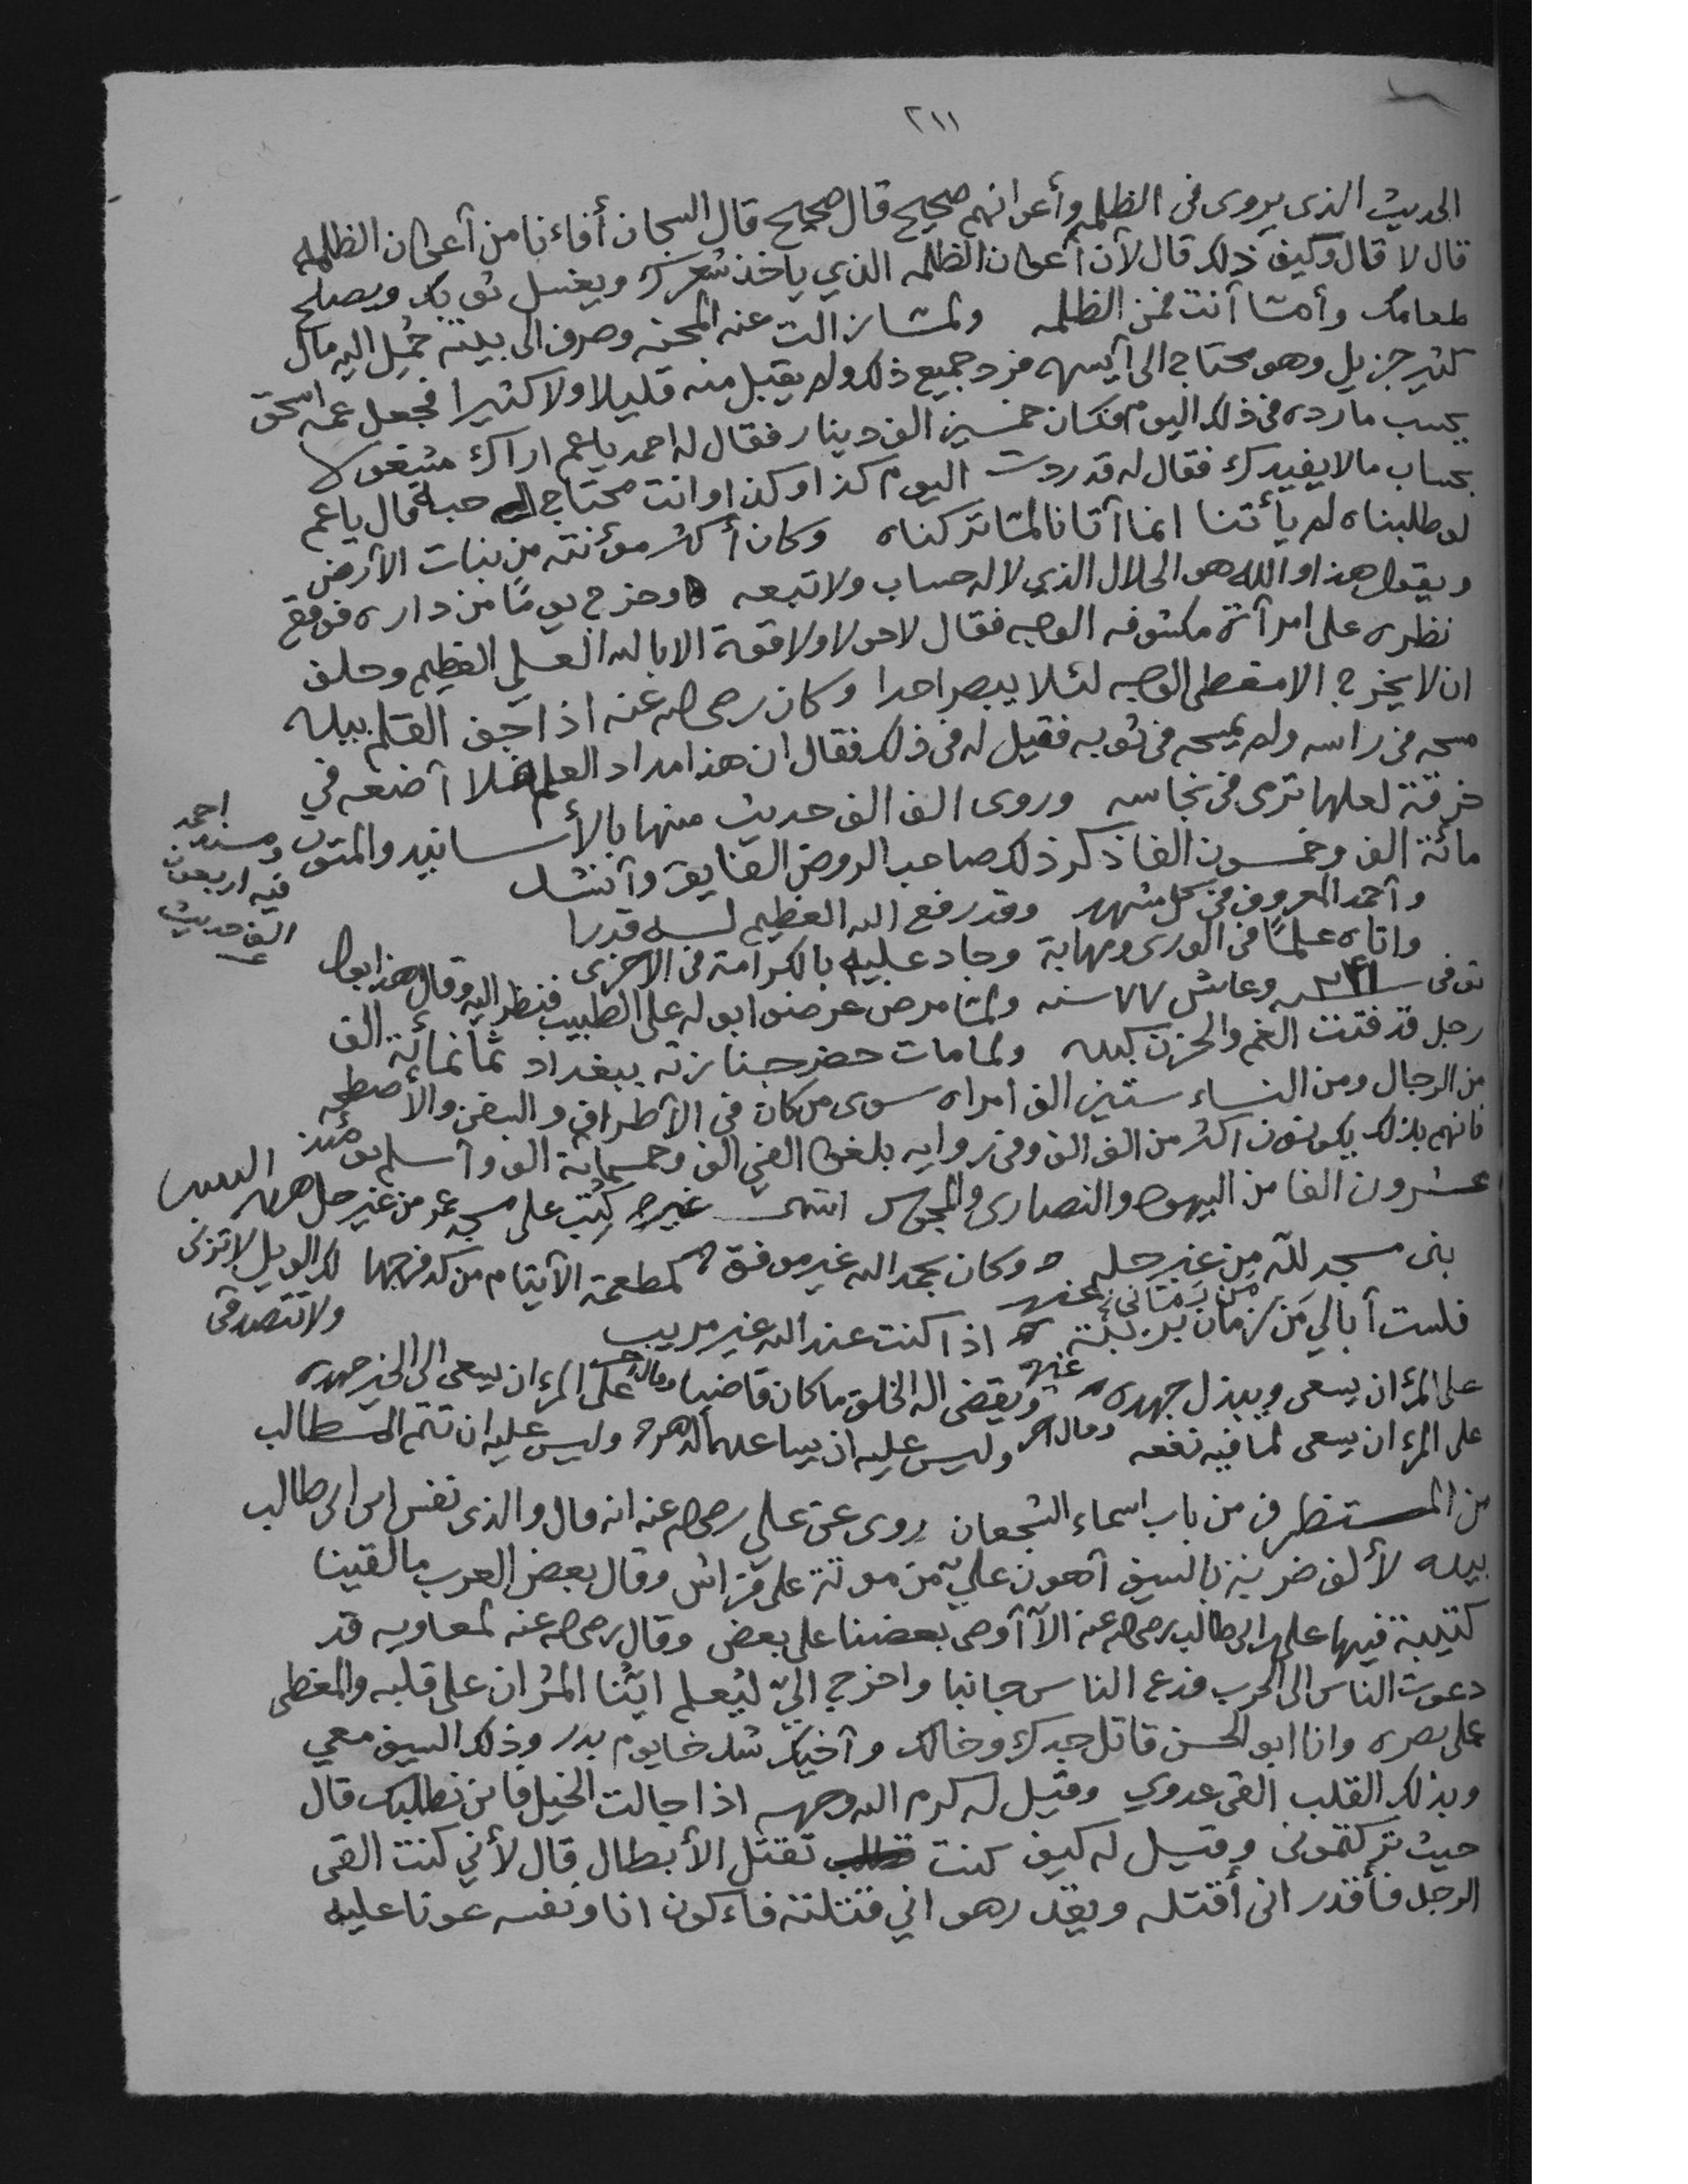 ٢١١
الحديث الذى يروى فى الظلمه وأعوانهم صحيح قال صحيح قال السجان أفاءنا من أعوان الظلمه
قال لا قال وكيف ذلك قال لأن أعوان الظلمه الذي ياخذ شعرك ويغسل ثوبك ويصلح
طعامك وأما أنت فمن الظلمه ولما زالت عنه المحنه وصرف الى بيته حُمِل اليه مال
كثير جزيل وهو محتاج الى أيسره فرد جميع ذلك ولم يقبل منه قليلا ولا كثيرا فجعل عمه اسحق
يحسب ما رده فى ذلك اليوم فكان خمسين الف دينار فقال له احمد ياعم اراك مشغولا
بحساب مالا يفيدك فقال له قد رددت اليوم كذا وكذا وانت محتاج الى حبة قال ياعم
لو طلبناه لم يأتنا انما أتانا لما تركناه وكان أكثر مؤنته من نبات الأرض
ويقول هذا والله هو الحلال الذي لا له حساب ولا تبعه وخرج يومًا من داره فوقع
نظره على امرأة مكشوفه الوجه فقال لا حول ولا قوة الا بالله العلي العظيم وحلف
ان لا يخرج الا مغطى الوجه لئلا يبصر احدا وكان رضى الله عنه اذا جف القلم بيده
مسحه فى راسه ولم يمسحه فى ثوبه فقيل له فى ذلك فقال ان هذا مداد العلم فلا أضعه في
خرقة لعلها ترمى فى نجاسه وروى الف الف حديث منها بالأسانيد والمتون
مائة الف وخمسون الفا ذكر ذلك صاحب الروض الفايق وأنشد
ومسند احمد
فيه اربعون
الف حديث
وأحمد المعروف فى كل مشهد وقد رفع الله العظيم له قدرا
واتاه علمًا فى الورى ومهابة وجاد عليه بالكرامة فى الاخرى
توفى سنه ٢٤١ وعاش ٧٧ سنه ولما مرض عرضوا بوله على الطبيب فنظر اليه وقال هذا بول
رجل قد فتت الغم والحزن كبده ولما مات حضر جنازته ببغداد ثمانمائة الف
من الرجال ومن النساء ستين الف امراه سوى من كان فى الأطراف والسفن والأسطحه
فانهم بذلك يكونون اكثر من الف الف وفى روايه بلغوا الفى الف وخمسمائة الف وأسلم يومئذ
عشرون الفا من اليهود والنصارى والمجوس انتهى غيره كتب على مسجد عمر من غير حل
بنى مسجد لله من غير حله وكان بحمد الله غير موفق كمطعمة الأيتام من كد فرجها لك الويل لا تزنى
ولا تتصدقى
فلست أبالي من زمان بريبة اذا كنت عند الله غير مريب
على المرء ان يسعى ويبذل جهده ويقضى اله الخلق ما كان قاضيا وقال على المرء ان يسعى الى الخير جهده
على المرء ان يسعى لما فيه نفعه وليس عليه ان يساعده الدهر وليس عليه ان تتم المطالب
من المستظرف من باب اسماء الشجعان روى عن علي رضى الله عنه انه قال والذى نفس ابن ابى طالب
بيده لألف ضربة بالسيف أهون عليّ من موتة على فراش وقال بعض العرب ما لقينا
كتيبة فيها على بن ابى طالب رضى الله عنه الا أوصى بعضنا على بعض وقال رضى الله عنه لمعاويه قد
دعوت الناس الى الحرب فدع الناس جانبا واخرج اليّ ليُعلم ايّنا المران على قلبه والمغطى
على بصره وانا ابو الحسن قاتل جدك وخالك وأخيك شدخا يوم بدر وذلك السيف معي
وبذلك القلب القى عدوي وقيل له كرم الله وجهه اذا جالت الخيل فاين نطلبك قال
حيث تركتمونى وقيل له كيف كنت تقتل الأبطال قال لأني كنت القى
الرجل فأقدر انى أقتله ويقدر هو اني قتلته فاءكون انا ونفسه عونا عليه